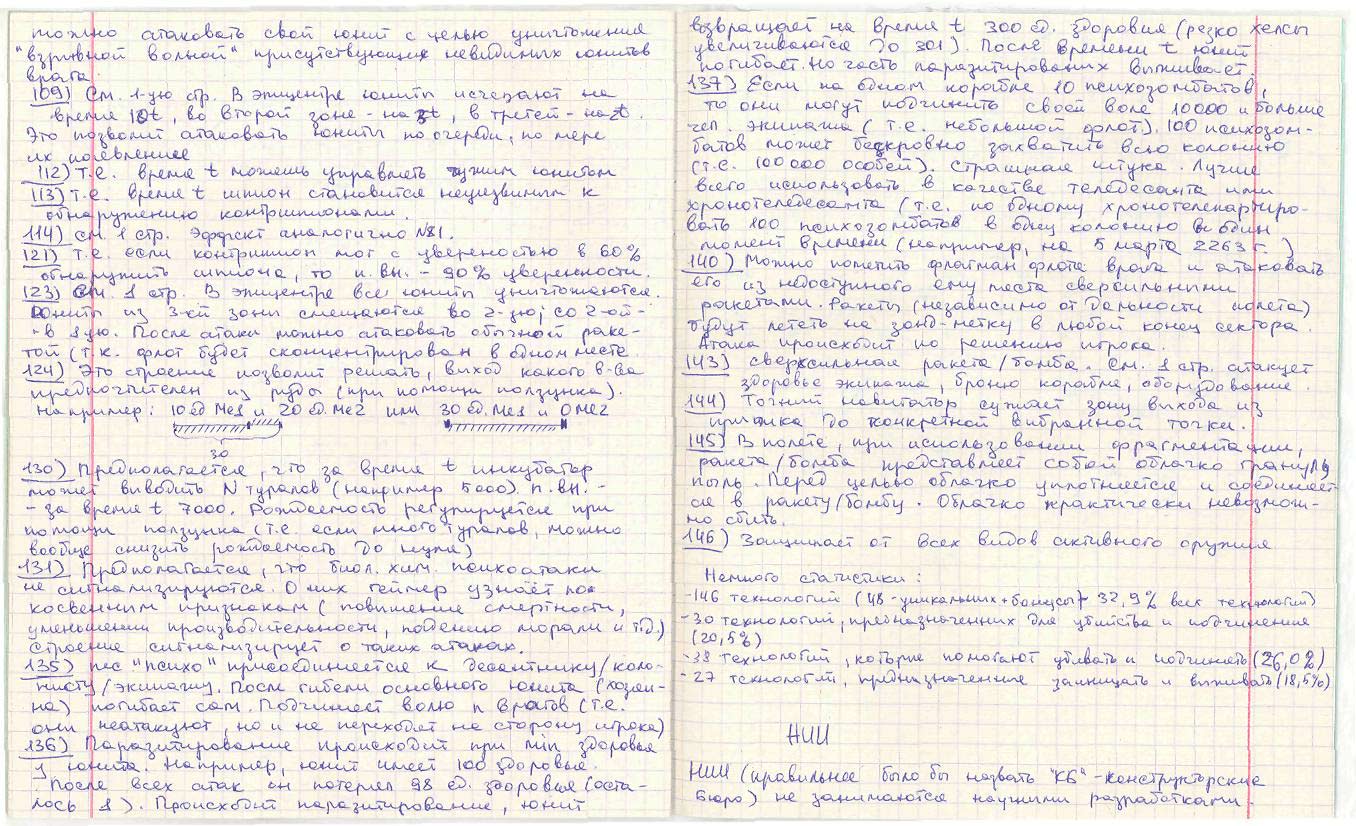 можно атаковать свой юнит с целью уничтожения
"взрывной волной" присутствующих невидимых юнитов
врага.
109) См. 1-ую стр. В эпицентре юниты исчезают на
время 10t, во второй зоне - на 5t, в третей - на t.
Это позволит атаковать юниты по очереди, по мере
их появления
112) Т.е. время t можешь управлять чужим юнитом
113) Т.е. время t шпион становится неуязвимым к
обнаружению контршпионами.
114) см. 1 стр. Эффект аналогично №81.
121) Т.е. если контршпион мог с увереностью в 60%
обнаружить шпиона, то п.вн. - 90% уверенности.
123) См. 1 стр. В эпицентре все юниты уничтожаются.
Юниты из 3-ей зоны смещаются во 2-ую; со 2-ой -
- в 1-ую. После атаки можно атаковать обычной раке-
той (т.к. флот будет сконцентрирован в одном месте.
124) Это строение позволит решать, выход какого в-ва
предпочтителен из руды (при помощи ползунка).
Например: 10 ед Ме1 и 20 ед. Ме2 или 30 ед. Ме1 и 0 Ме2
30
130) Предполагается, что за время t инкубатор
может выводить N туралов (например 5000). п.вн. -
- за время t 7000. Рождаемость регулируется при
помощи ползунка (т.е. если много туралов, можно
вообще снизить рождаемость до нуля)
131) Предполагается, что биол. хим. психоатаки
не сигнализируются. О них геймер узнаёт по
косвенним признакам (повышение смертности,
уменьшении производительности, подению морали и т.д.)
Строение сигнализирует о таких атаках.
135) пес "психо" присоединяется к десантнику/коло-
нисту/экипажу. После гибели основного юнита (хозяи-
на) погибает сам. Подчиняет волю n врагов (т.е.
они неатакуют, но и не переходят на сторону игрока)
136) Паразитирование происходит при min здоровье
у юнита. Например, юнит имеет 100 здоровье.
После всех атак он потерял 98 ед. здоровья (оста-
лось 1). Происходит паразитирование, юнит
возвращает на время t 300 ед. здоровья (резко хелсы
увеличиваются до 301). После времени t юнит
погибает. Но часть паразитированых выживает.
137) Если на одном корабле 10 психозомбатов,
то они могут подчинить своей воле 10000 и больше
чел. экипажа (т.е. небольшой флот). 100 психозом-
батов может бескровно захватить всю колонию
(т.е. 100 000 особей). Страшная штука. Лучше
всего использовать в качестве теледесанта или
хронотеледесанта (т.е. по одному хронотелепортиро-
вать 100 психозомбатов в одну колонию в один
момент времени (например, на 5 марта 2263 г.)
140) Можно пометить флагман флота врага и атаковать
его из недоступного ему места сверсильными
ракетами. Ракеты (независимо от дальности полёта)
будут лететь на зонд-метку в любой конец сектора.
Атака происходит по решению игрока.
143) сверхсильная ракета/бомба. См. 1 стр. атакует
здоровье экипажа, броню корабля, оборудование.
144) Точний навигатор сужает зону выхода из
прыжка до конкретной вибранной точки.
145) В полёте, при использовании фрагментации,
ракета/бомба представляет собой облачко гранул/
пыль. Перед целью облачко уплотняется и соединяет-
ся в ракету/бомбу. Облачко практически невозмож-
но сбить.
146) Защищает от всех видов активного оружия
Немного статистики:
-146 технологий (48 - уникальних + бонусы) - 32,9% всех технологий)
-30 технологий, предназначенных для убийства и подчинения
(20,5%)
-38 технологий, которые помогают убивать и подчинять (26,0%)
-27 технологий, предназначенние защищать и выживать (18,5%)
НИИ
НИИ (правильнее было бы назвать "КБ" - конструкторские
бюро) не занимаются научными разработками.